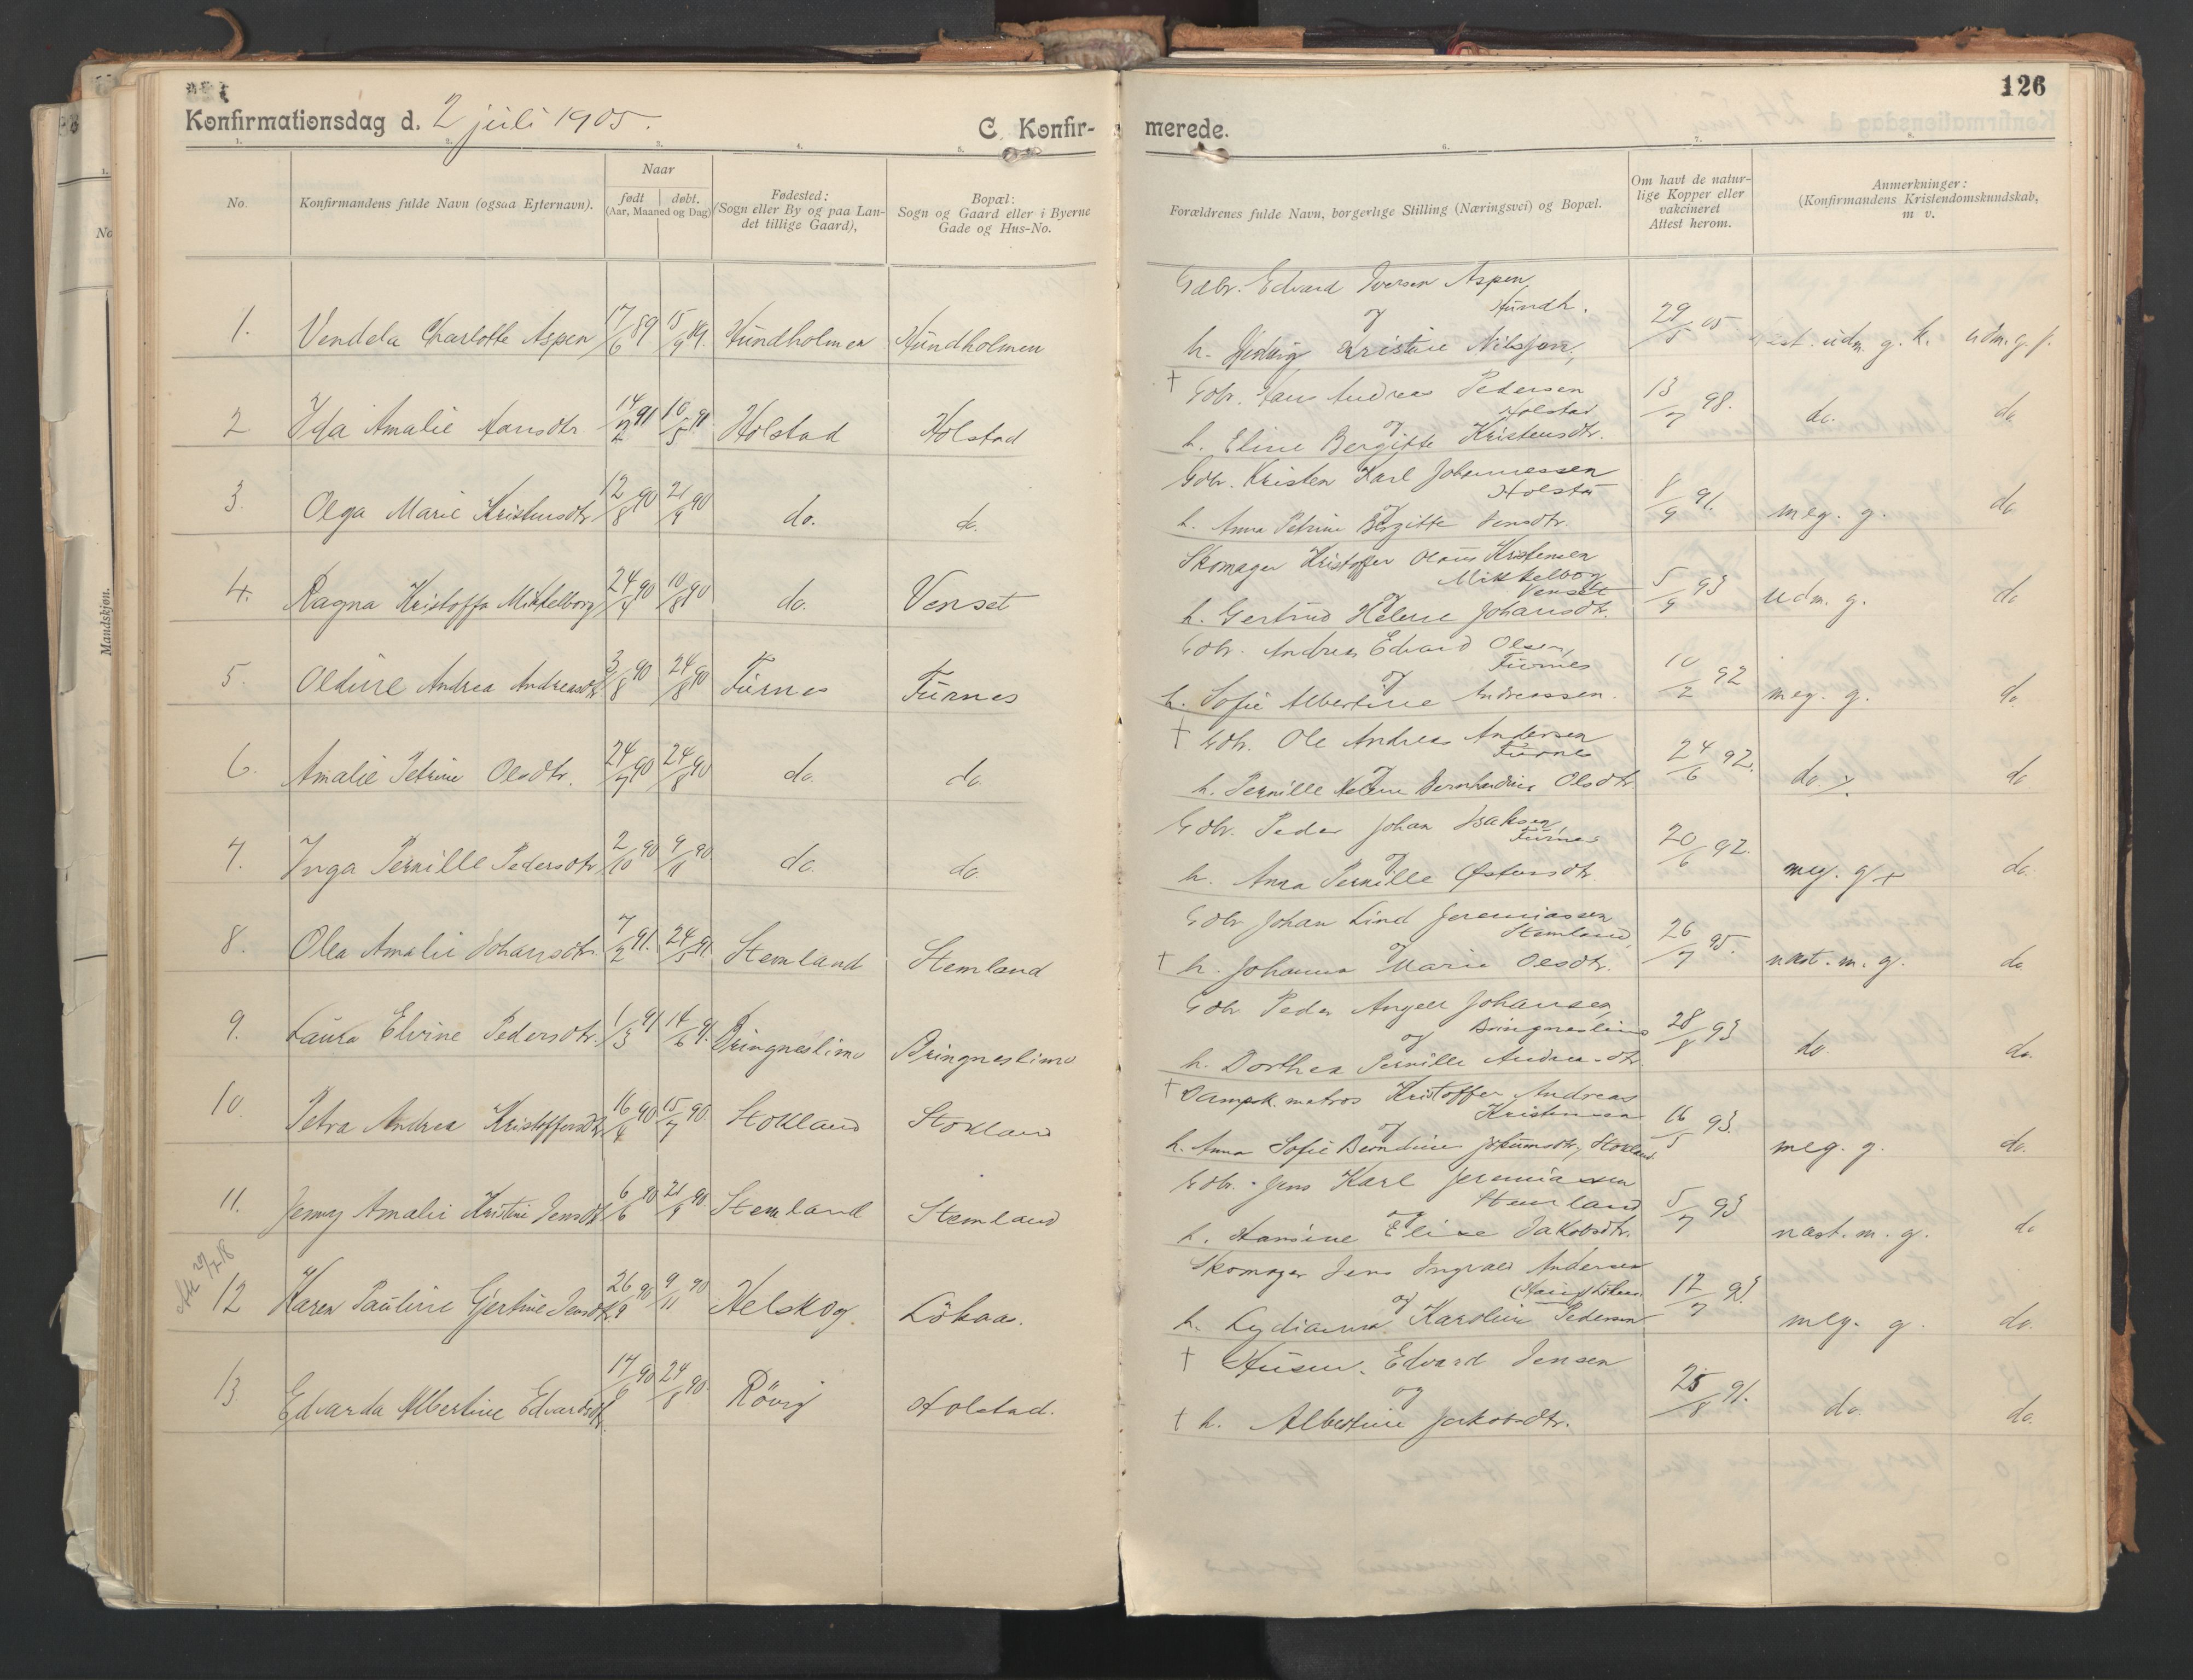 126
Konfirmationsdag d. 2 juli 1905. C. Konfir- merede.
1. 2. 3. 4. 5. 6. 7. 8.
No.
Konfirmandens fulde Navn (ogsaa Efternavn).
Naar
født døbt.
(Aar, Maaned og Dag)
Fødested:
(Sogn eller By og paa Lan-
det tillige Gaard),
Bopæl:
Sogn og Gaard eller i Byerne
Gade og Hus-No.
Forældrenes fulde Navn, borgerlige Stilling (Næringsvei) og Bopæl.
Om havt de natur-
lige Kopper eller
vakcineret
Attest herom.
Anmerkninger:
(Konfirmandens Kristendomskundskab,
m v.
Gdbr. Edvard Iversen Aspen
Hundh.
1. Vendela Charlotte Aspen 17/6 89 15/9 89. Hundholmen Hundholmen og 29/5 05 udm. g. k. udm. g. f.
h. Hedvig Kristine Nilsson,
† Gdbr. Hans Andreas Pedersen
Holstad
2 Ida Amalie Hansdtr 14/2 91 10/5 91 Holstad Holstad og 13/7 98. do. do.
h. Eline Bergitte Kristensdtr.
Gdbr. Kristen Karl Johannessen
Holstad
3. Olga Marie Kristensdtr 12/8 90 21/9 90 do. do. og 8/9 91. meg. g. do
h. Anna Petrine Bergitte Jensdtr.
Skomager Kristoffer Olaus Kristensen
Mikkelborg
Venset
4. Ragna Kristoffa Mikkelborg 24/4 90 10/8 90 do. Venset og 5/9 93 udm. g. do
h. Gertrud Helene Johansdtr.
Gdbr. Andreas Edvard Olsen,
Furnes
5. Oldine Andrea Andreasdtr. 3/8 90 24/8 90 Furnes Furnes og 10/2 92 meg. g. do
h. Sofie Albertine Andreassen.
† Gdbr. Ole Andreas Andersen
Furnes
6. Amalie Petrine Olsdtr. 24/7 90 24/8 90 do. do. og 24/6 92. do do
h. Pernille Helene Bernhardine Olsdtr
Gdbr. Peder Johan Isaksen,
Furnes
7. Inga Pernille Pedersdtr 2/10 90 9/11 90 do. do. og 20/6 92. meg. g + do.
h. Anna Pernille Østensdtr.
Gdbr Johan Lind Jeremiassen
Stemland,
8. Olea Amalie Johansdtr. 7/2 91. 24/5 91. Stemland Stemland og 26/7 95. næst. m. g. do.
† h. Johanna Marie Olsdtr.
Gdbr Peder Angell Johansen,
Bringneslimo
9. Laura Elvine Pedersdtr. 1/3 91 14/6 91. Bringneslimo Bringneslimo og 28/8 93 do do.
h. Dorthea Pernille Andreasdtr.
† Dampsk. matros Kristoffer Andreas
Kristensen
10. Petra Andrea Kristoffersdtr 16/4 90 15/7 90. Stokland Stokland og 16/5 93. meg. g. do.
h. Anna Sofie Berndine Johansdtr, Stokland.
Gdbr. Jens Karl Jeremiassen
Stemland
11. Jenny Amalie Kristine Jensdtr 6/6 90 21/9 90. Stemland Stemland og 5/7 93 næst. m. g. do
h. Hansine Elise Jakobsdtr.
Skomager Jens Ingvald Andersen
12 Karen Pauline Gjertine Jensdtr. 26/9 90 9/11 90 Helskog. Løkaas. og 17/7 93 meg. g. do.
h. Lydianna Karoline Pedersen
† Husm. Edvard Jensen
13 Edvarda Albertine Edvardsdtr. 17/6 90 24/8 90. Røvig Holstad. og 25/8 91. do do.
† h. Albertine Jakobsdtr.
Mandskjøn.